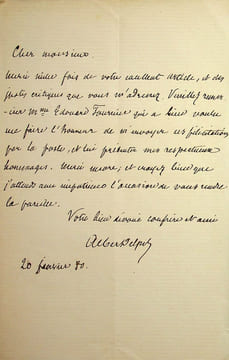 Cher monsieur
Merci mille fois de votre excellent article, et des
justes critiques que vous m'adressez. Veuillez remer-
-cier Mme Edouard Fournier qui a bien voulu
me faire l'honneur de m'envoyer ses félicitations
par la poste, et lui présenter mes respectueux
hommages. Merci encore, et croyez bien que
j'attends avec impatience l'occasion de vous rendre
la pareille.
Votre bien dévoué confrère et ami
Albert Delpit
20 janvier 80.